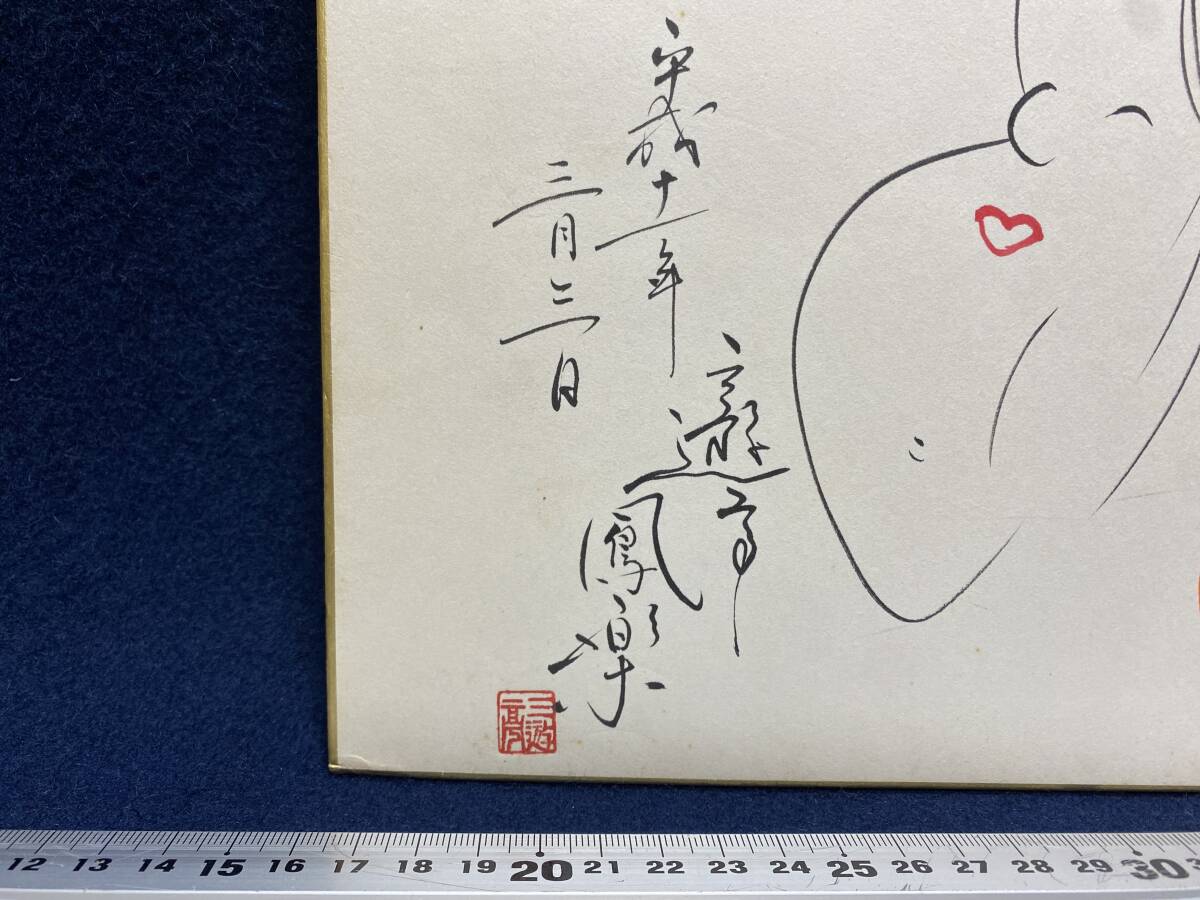 平成十一年
三月三日
三遊亭
鳳楽
三遊亭
12 13 14 15 16 17 18 19 20 21 22 23 24 25 26 27 28 29 30